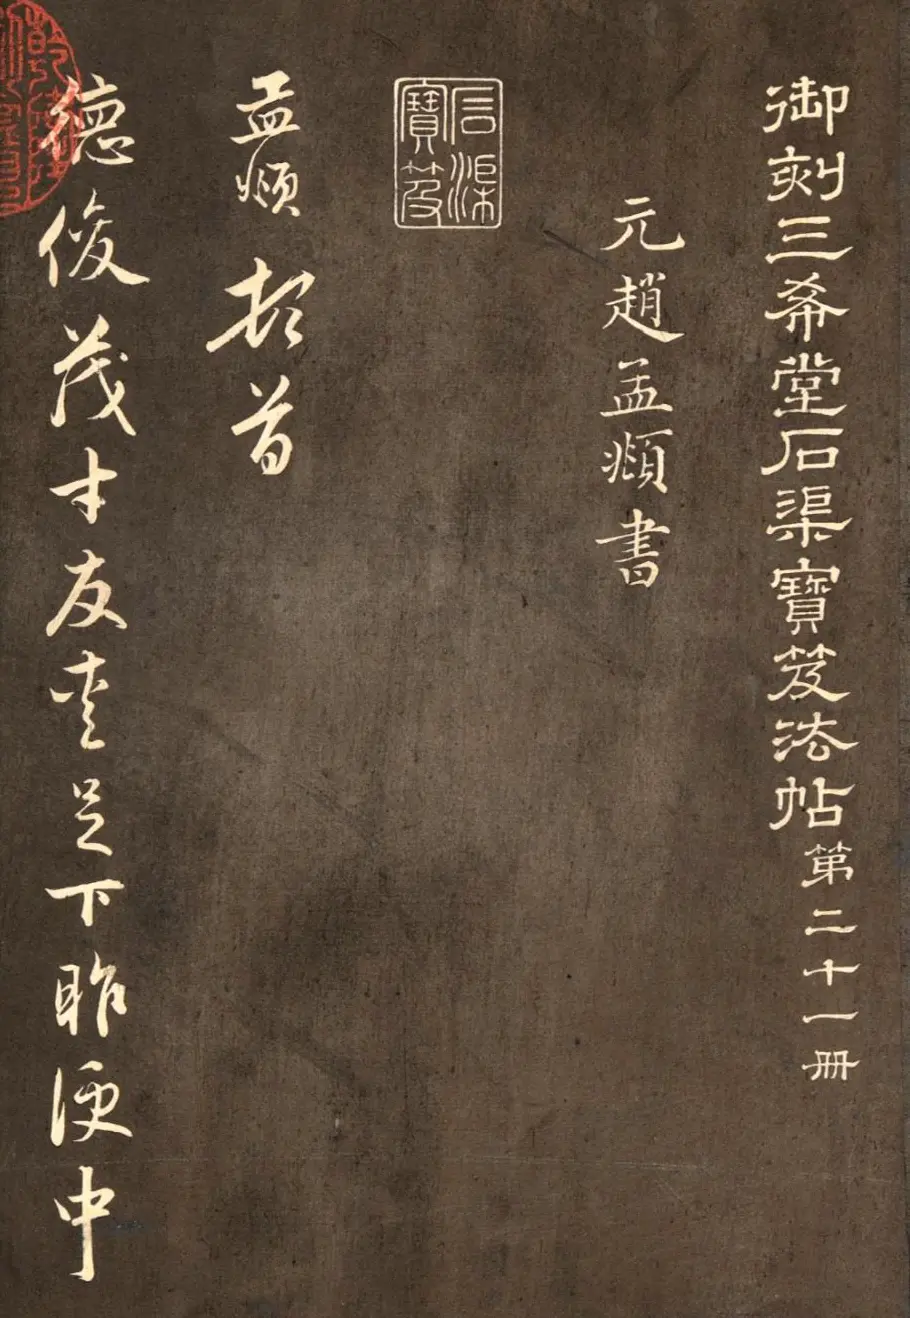 御刻三希堂石渠寶笈法帖第二十一冊
元趙孟頫書
石渠寶笈
孟頫頓首
德俊茂才友愛足下昨便中